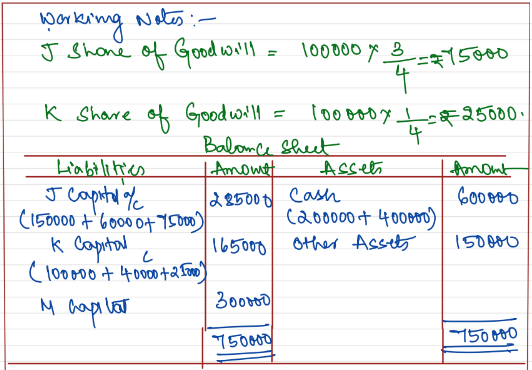 Working Notes :-
J Share of Goodwill = 100000 × 3/4 = ₹75000
K Share of Goodwill = 100000 × 1/4 = ₹25000.
Balance Sheet
Liabilities Amount Assets Amount
J Capital a/c 285000 Cash 600000
(150000 + 60000 + 75000) (200000 + 400000)
K Capital 165000 Other Assets 150000
(100000 + 40000 + 25000)
M Capital 300000
750000 750000